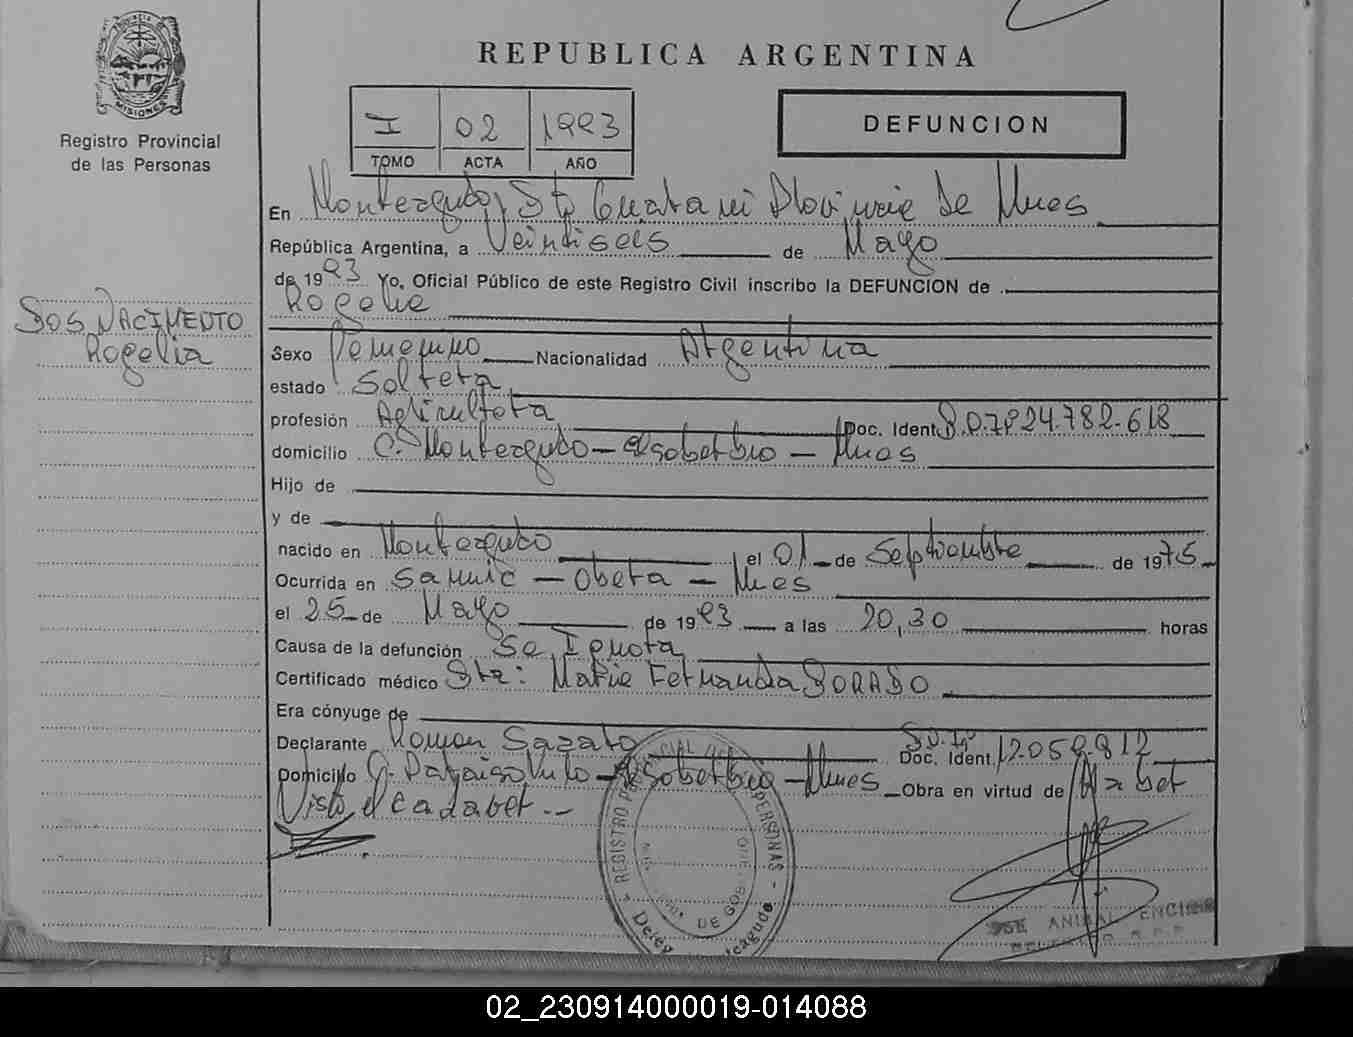 PROVINCIA DE
MISIONES
Registro Provincial
de las Personas
REPUBLICA ARGENTINA
I 02 1993
TOMO ACTA AÑO
DEFUNCION
En Monteagudo, Guarani Provincie de Mnes
República Argentina, a Veintiseis de Mayo
de 1993 Yo, Oficial Público de este Registro Civil inscribo la DEFUNCION de
Rogelie
DOS NACIMENTO
Rogelia
Sexo Femenino Nacionalidad Argentina
estado Soltera
profesión Agricultora Doc. Ident. 24.782.618
domicilio C. Monteagudo - El soberbio - Mnes
Hijo de
y de
nacido en Monteagudo el 01 de Septiembre de 1975
Ocurrida en Samic - Obera - Mnes
el 25 de Mayo de 1993 a las 20,30 horas
Causa de la defunción Se Ignora
Certificado médico Dra: Marie Fernanda DORADO
Era cónyuge de
Declarante Roman D.N.I.
Doc. Ident. 12.059.812
Domicilio C. Paraiso - El soberbio - Mnes Obra en virtud de Haber
Visto el cadaver.--
REGISTRO PROVINCIAL DE LAS PERSONAS
DE GOB
Deleg. Monteagudo
ANIBAL ENCINA
DELEGADO R.P.P.
02_230914000019-014088